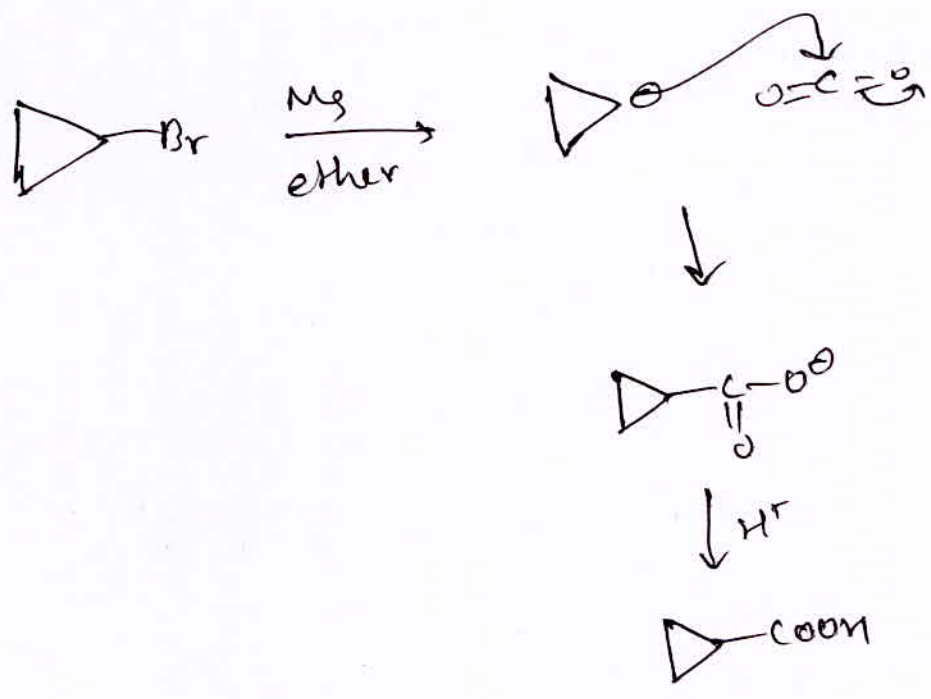 Mg
Br
ether
⊖
O=C=O
C-O⊖
||
O
H+
COOH